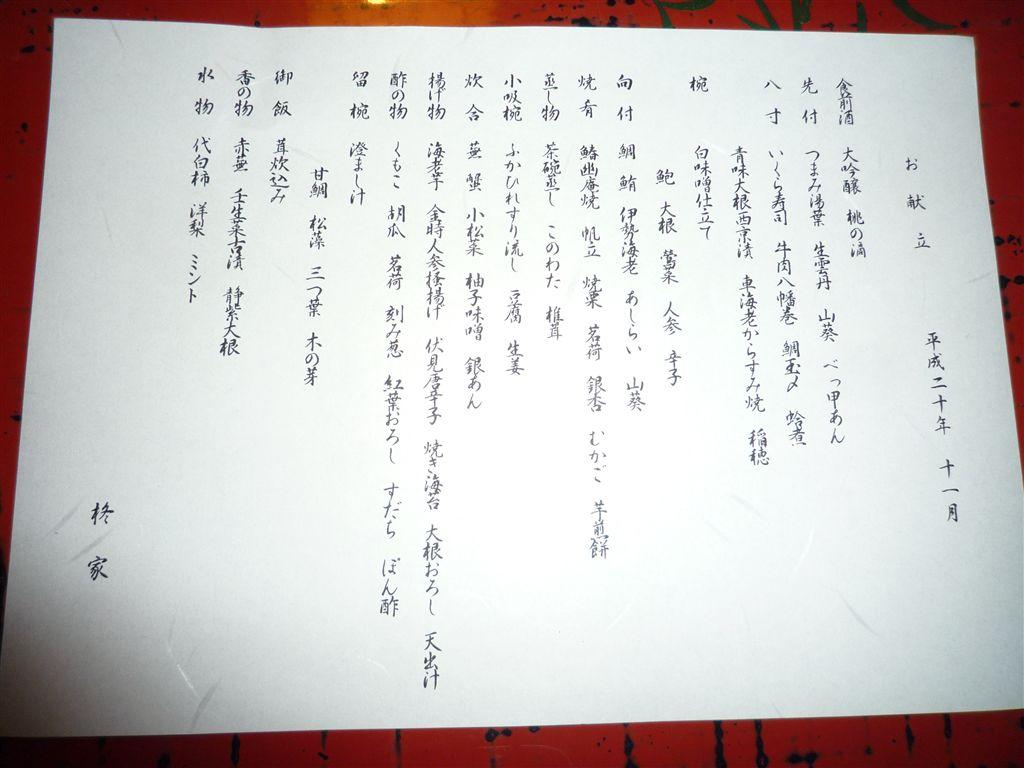 お献立
平成二十年 十一月
食前酒 大吟醸 桃の滴
先付 つまみ湯葉 生雲丹 山葵 べっ甲あん
八寸 いくら寿司 牛肉八幡巻 鯛玉〆 蛤煮
青味大根西京漬 車海老からすみ焼 稲穂
椀 白味噌仕立て
鮑 大根 鶯菜 人参 辛子
向付 鯛 鮪 伊勢海老 あしらい 山葵
焼肴 鰆幽庵焼 帆立 焼栗 茗荷 銀杏 むかご 芋煎餅
蒸し物 茶碗蒸し このわた 椎茸
小吸椀 ふかひれすり流し 豆腐 生姜
炊合 蕪 蟹 小松菜 柚子味噌 銀あん
揚げ物 海老芋 金時人参掻揚げ 伏見唐辛子 焼き海苔 大根おろし 天出汁
酢の物 くもこ 胡瓜 茗荷 刻み葱 紅葉おろし すだち ぽん酢
留椀 澄まし汁
甘鯛 松藻 三つ葉 木の芽
御飯 茸炊込み
香の物 赤蕪 壬生菜古漬 静紫大根
水物 代白柿 洋梨 ミント
柊家